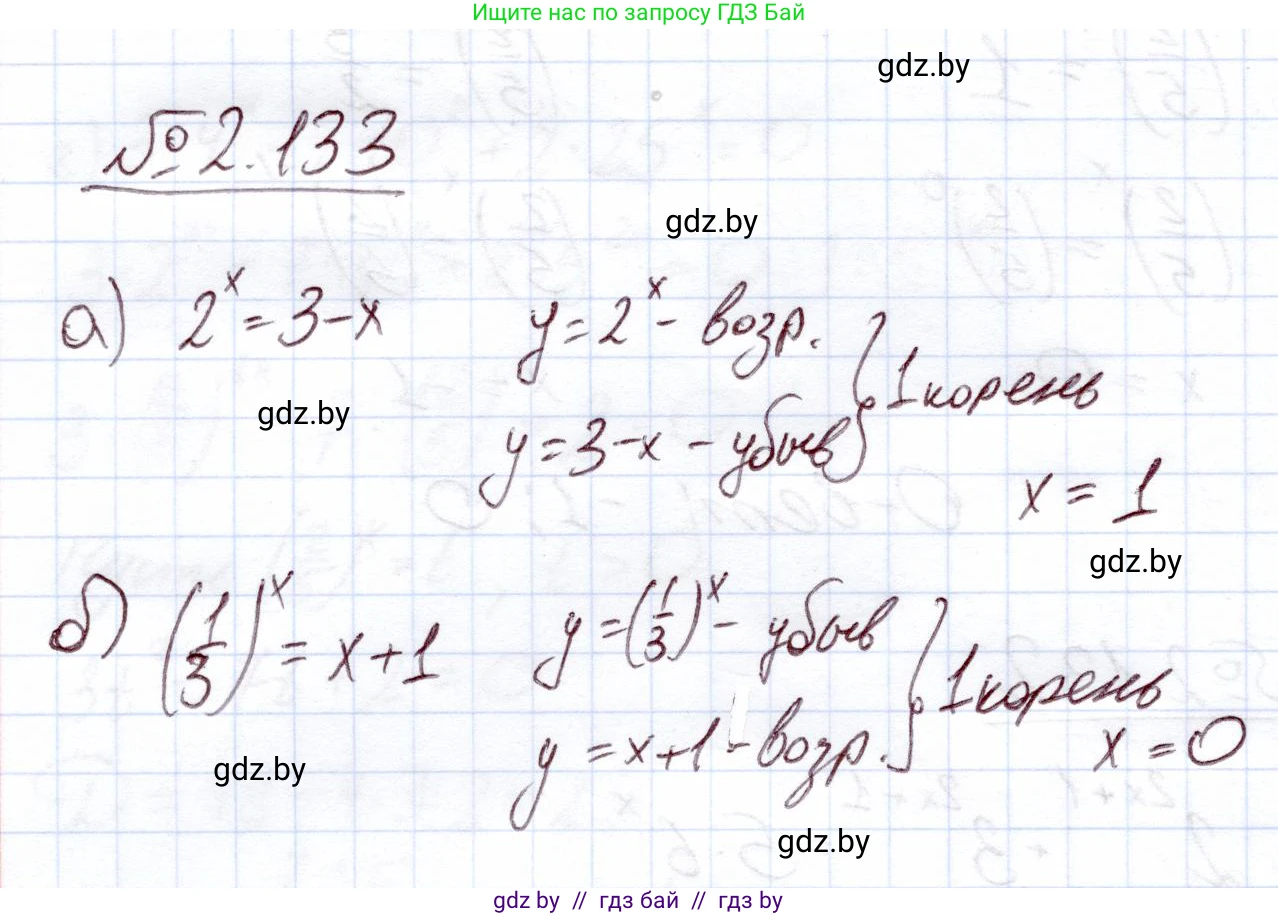 Ищите нас по запросу ГДЗ Бай
gdz.by
№ 2.133
gdz.by
а) 2^x = 3-x y = 2^x - возр. } 1 корень
gdz.by
y = 3-x - убыв
x = 1
gdz.by
б) (1/3)^x = x+1 y = (1/3)^x - убыв } 1 корень
y = x+1 - возр.
x = 0
gdz.by
gdz.by
gdz by // гдз бай // гдз by